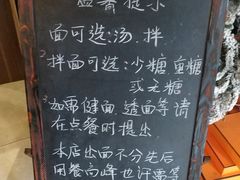 温馨提示
1面可选:汤、拌
2拌面可选:少糖、重糖
或无糖
3如需健面、透面等请
在点餐时提出
本店出面不分先后
用餐高峰也许需等